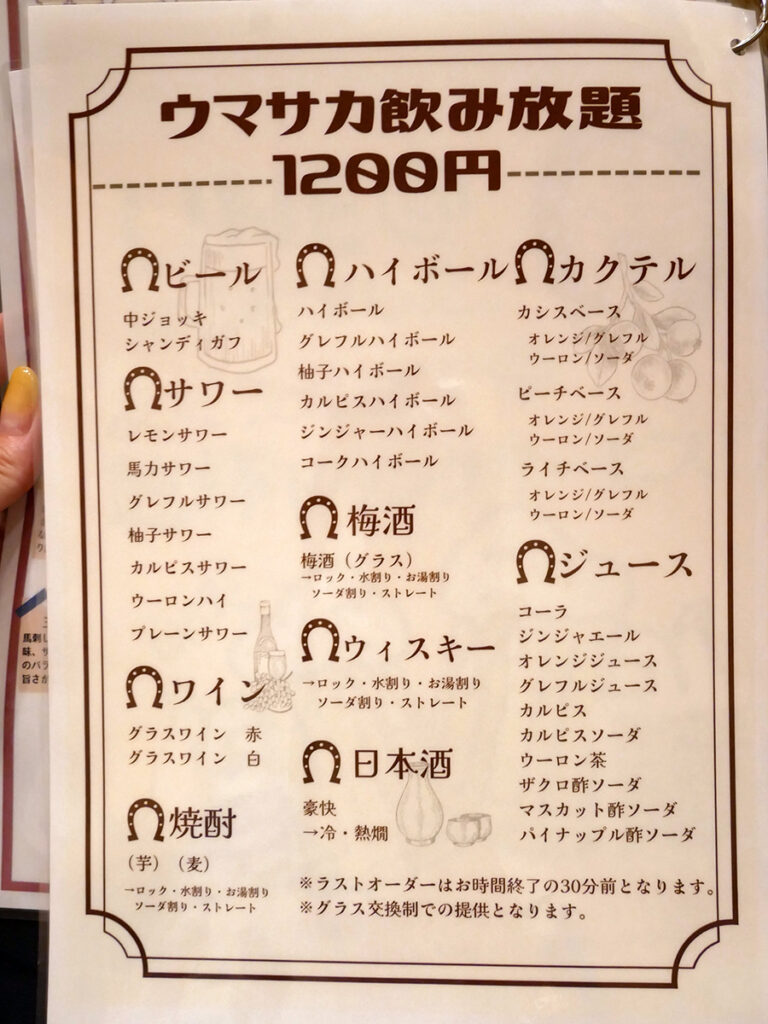 ウマサカ飲み放題
1200円
ビール
中ジョッキ
シャンディガフ
サワー
レモンサワー
馬力サワー
グレフルサワー
柚子サワー
カルピスサワー
ウーロンハイ
プレーンサワー
ワイン
グラスワイン 赤
グラスワイン 白
焼酎
(芋)(麦)
→ロック・水割り・お湯割り
ソーダ割り・ストレート
ハイボール
ハイボール
グレフルハイボール
柚子ハイボール
カルピスハイボール
ジンジャーハイボール
コークハイボール
梅酒
梅酒(グラス)
→ロック・水割り・お湯割り
ソーダ割り・ストレート
ウィスキー
→ロック・水割り・お湯割り
ソーダ割り・ストレート
日本酒
豪快
→冷・熱燗
カクテル
カシスベース
オレンジ/グレフル
ウーロン/ソーダ
ピーチベース
オレンジ/グレフル
ウーロン/ソーダ
ライチベース
オレンジ/グレフル
ウーロン/ソーダ
ジュース
コーラ
ジンジャエール
オレンジジュース
グレフルジュース
カルピス
カルピスソーダ
ウーロン茶
ザクロ酢ソーダ
マスカット酢ソーダ
パイナップル酢ソーダ
※ラストオーダーはお時間終了の30分前となります。
※グラス交換制での提供となります。
馬刺し
味、サ
のバラ
旨さが